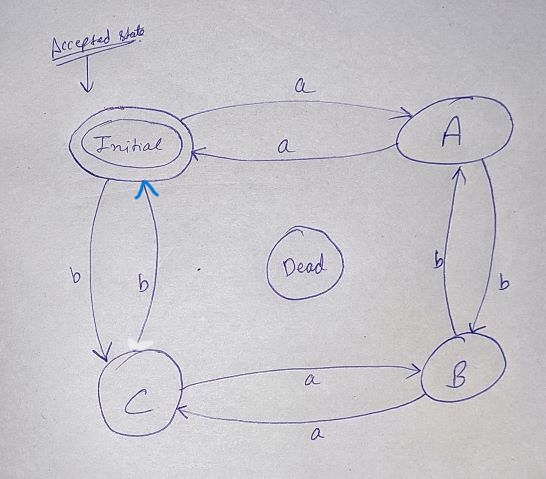 Accepted state
a
Initial
a
A
b
b
Dead
b
b
C
a
B
a